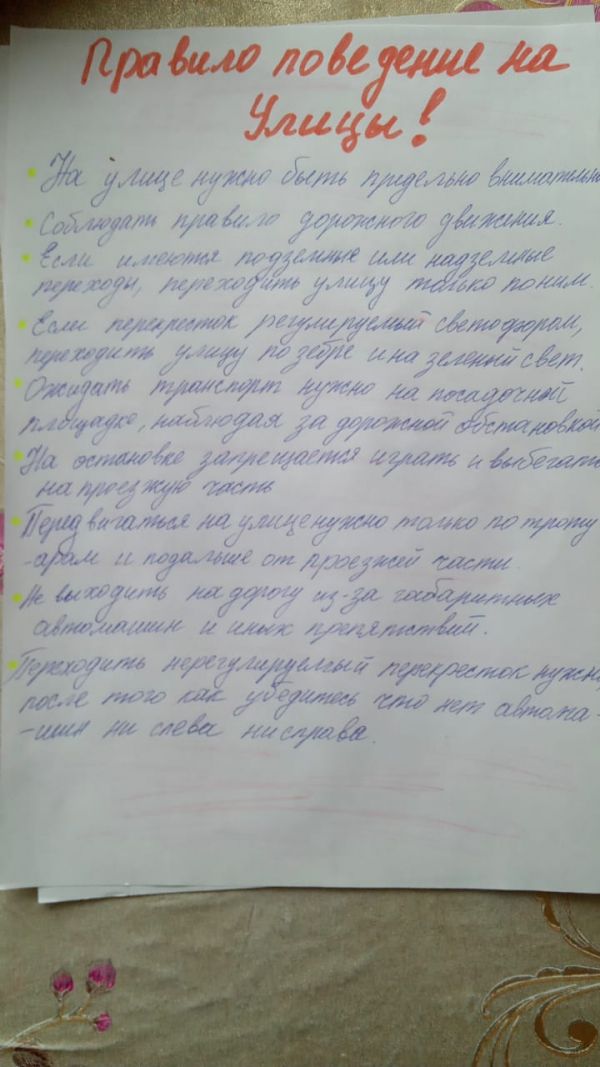 Правило поведение на
Улицы!
На улице нужно быть предельно внимательно
Соблюдать правило дорожного движения.
Если имеются подземные или надземные
переходы, переходить улицу только по ним.
Если перекресток регулируемый светофором,
переходить улицу по зебре и на зеленый свет.
Ожидать транспорт нужно на посадочной
площадке, наблюдая за дорожной обстановкой
На остановке запрещается играть и выбегать
на проезжую часть
Передвигаться на улице нужно только по троту
-арам и подальше от проезжей части.
Не выходить на дорогу из-за габаритных
автомашин и иных препятствий.
Переходить нерегулируемый перекресток нужно
после того как убедитесь что нет автома
-шин ни слева ни справа.